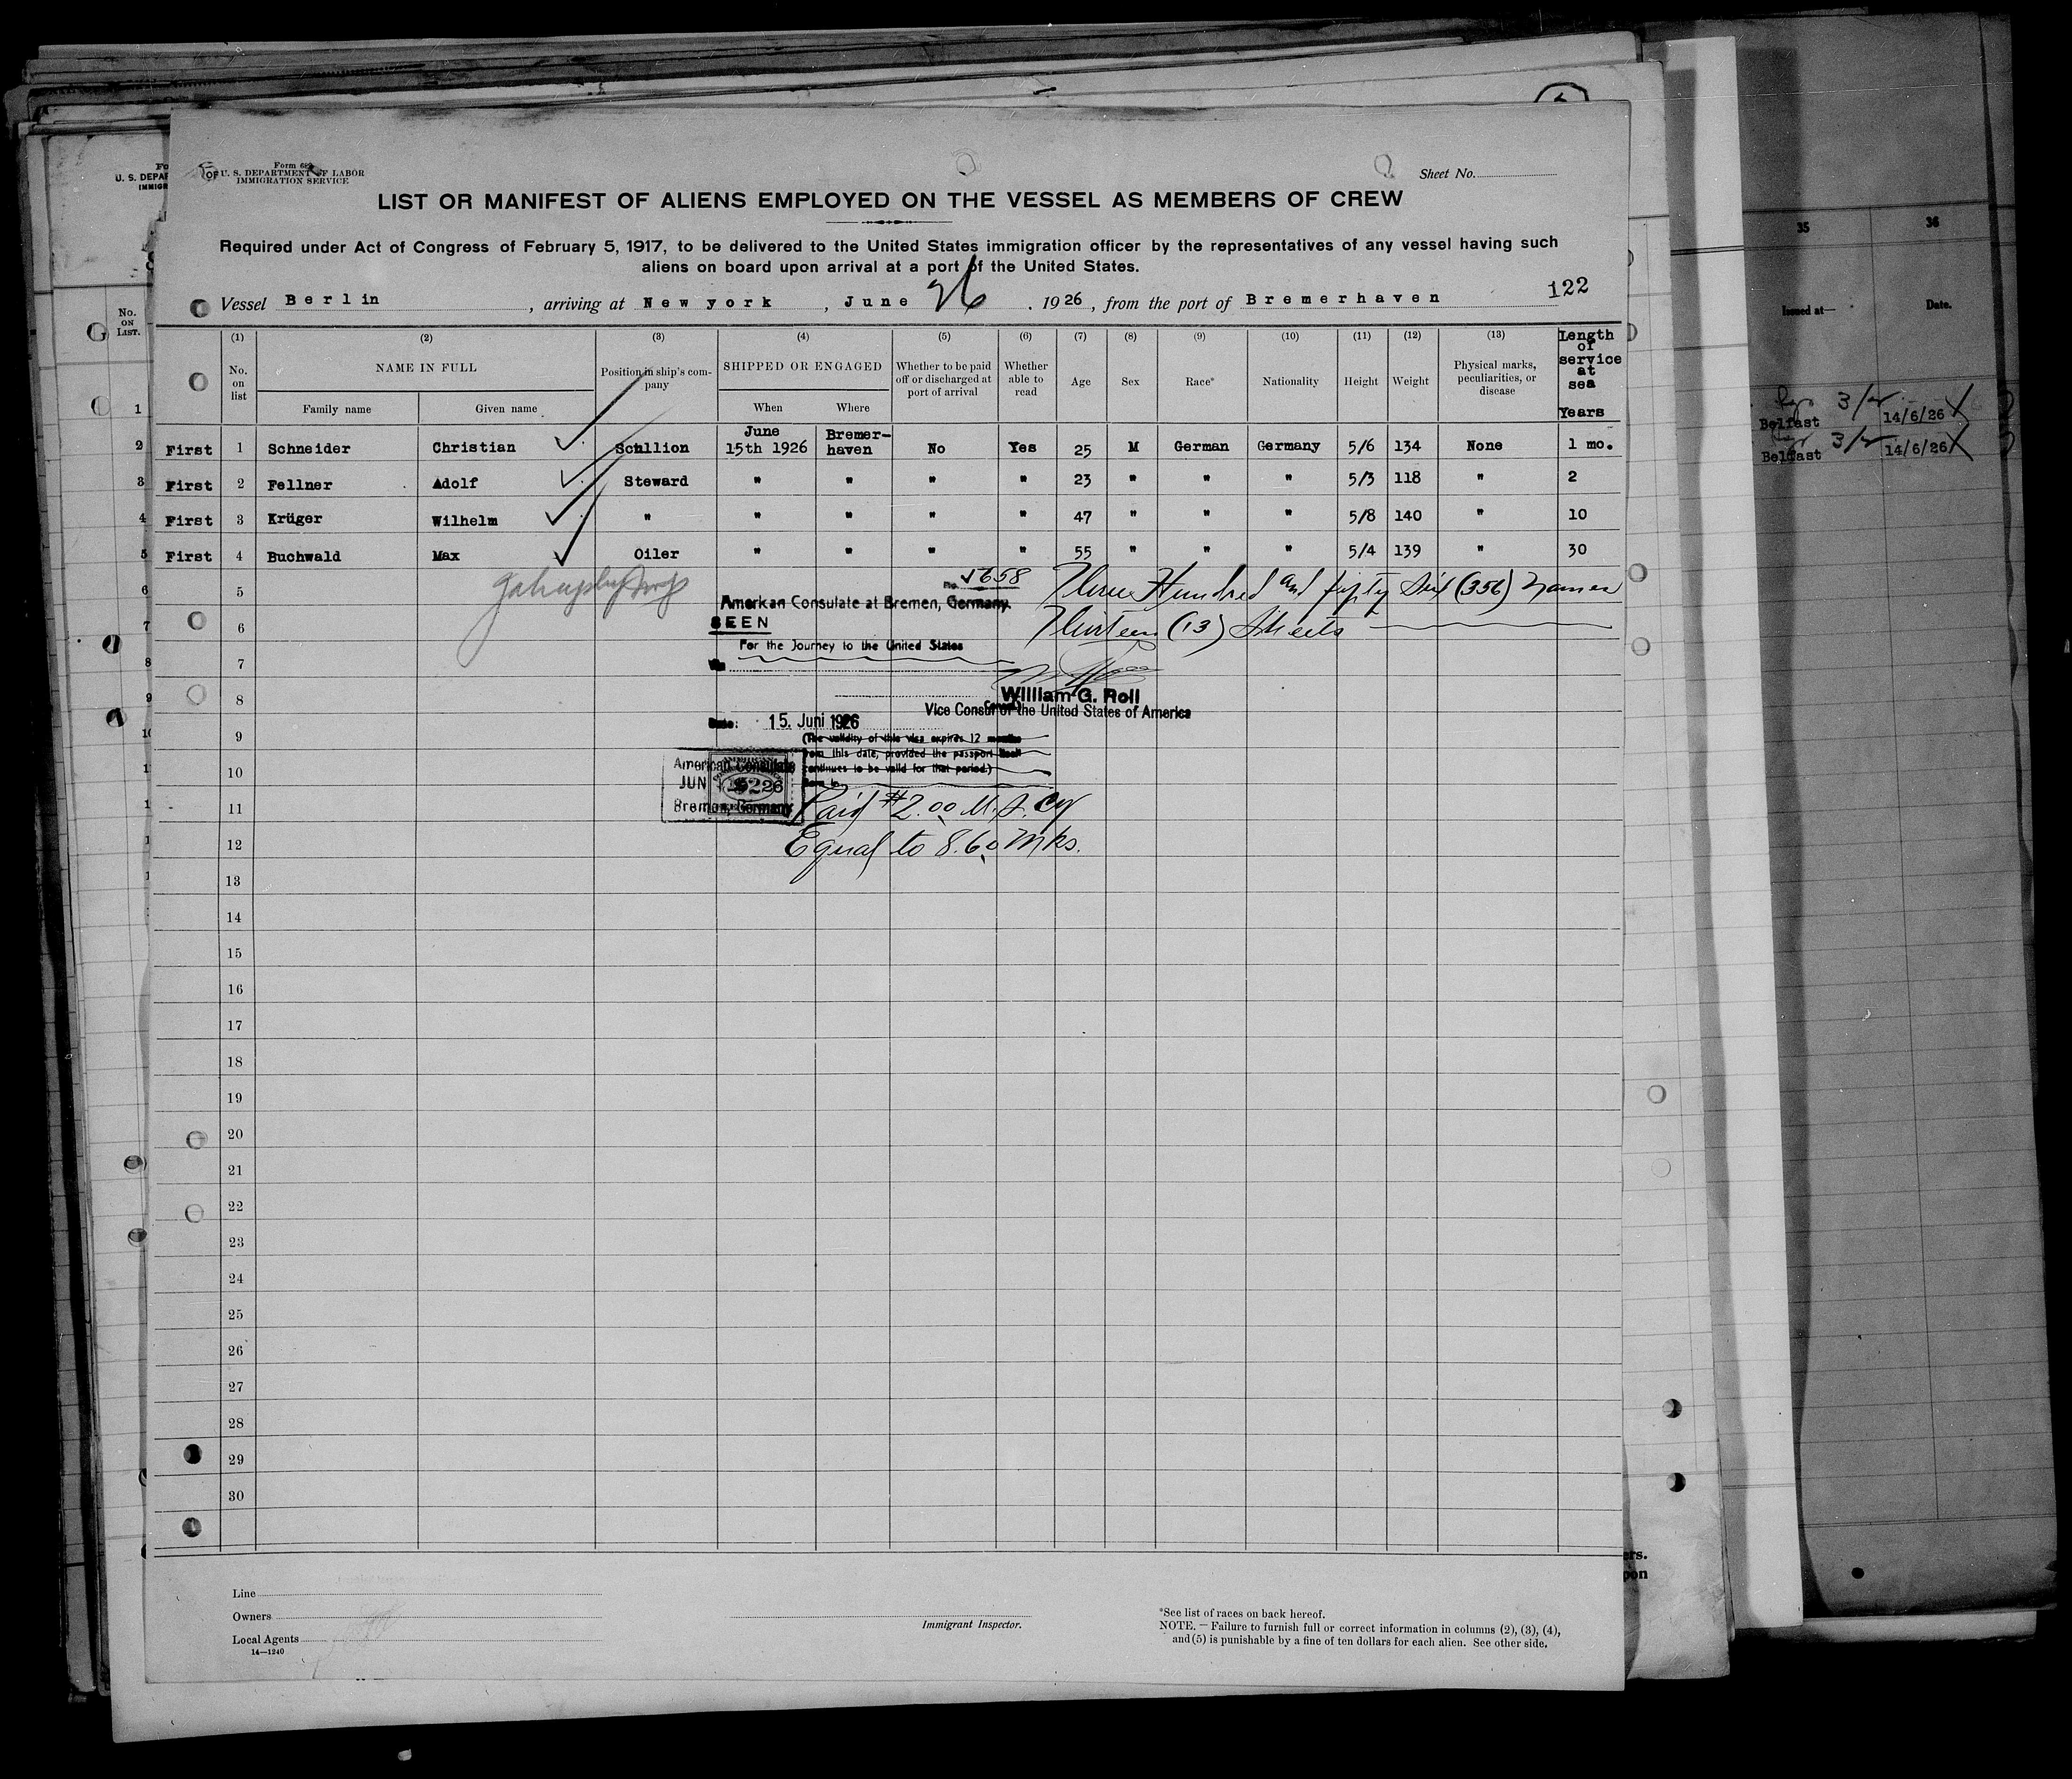 Form 689
U. S. DEPARTMENT OF LABOR
IMMIGRATION SERVICE
Sheet No.
LIST OR MANIFEST OF ALIENS EMPLOYED ON THE VESSEL AS MEMBERS OF CREW
Required under Act of Congress of February 5, 1917, to be delivered to the United States immigration officer by the representatives of any vessel having such
aliens on board upon arrival at a port of the United States.
122
Vessel Berlin, arriving at New york, June 26. 1926, from the port of Bremerhaven
(1) (2) (3) (4) (5) (6) (7) (8) (9) (10) (11) (12) (13)
No. on list NAME IN FULL Position in ship's company SHIPPED OR ENGAGED Whether to be paid off or discharged at port of arrival Whether able to read Age Sex Race* Nationality Height Weight Physical marks, peculiarities, or disease Length of service at sea Years
Family name Given name When Where
First 1 Schneider Christian Scullion June 15th 1926 Bremer-haven No Yes 25 M German Germany 5/6 134 None 1 mo.
First 2 Fellner Adolf Steward " " " " 23 " " " 5/3 118 " 2
First 3 Krüger Wilhelm " " " " " 47 " " " 5/8 140 " 10
First 4 Buchwald Max Oiler " " " " 55 " " " 5/4 139 " 30
5
6
7
8
9
10
11
12
13
14
15
16
17
18
19
20
21
22
23
24
25
26
27
28
29
30
No. 5658
American Consulate at Bremen, Germany.
SEEN
For the Journey to the United States
Via
Three Hundred and fifty Six (356) Names
Thirteen (13) Sheets
William G. Roll
Vice Consul of the United States of America
Date: 15. Juni 1926
(The validity of this visa expires 12 months
from this date, provided the passport itself
continues to be valid for that period.)
American Consulate
JUN 15 26
Bremen, Germany
Paid $2.00 U.S. Cy
Equal to 8.60 Mks.
Line
Owners
Local Agents
14—1240
Immigrant Inspector.
*See list of races on back hereof.
NOTE.—Failure to furnish full or correct information in columns (2), (3), (4),
and (5) is punishable by a fine of ten dollars for each alien. See other side.
U. S. DEPAR
IMMIGR
No.
ON
LIST.
1
2
3
4
5
6
7
8
9
35 36
Issued at— Date.
3/
Belfast 14/6/26
3/
Belfast 14/6/26
ers.
pon